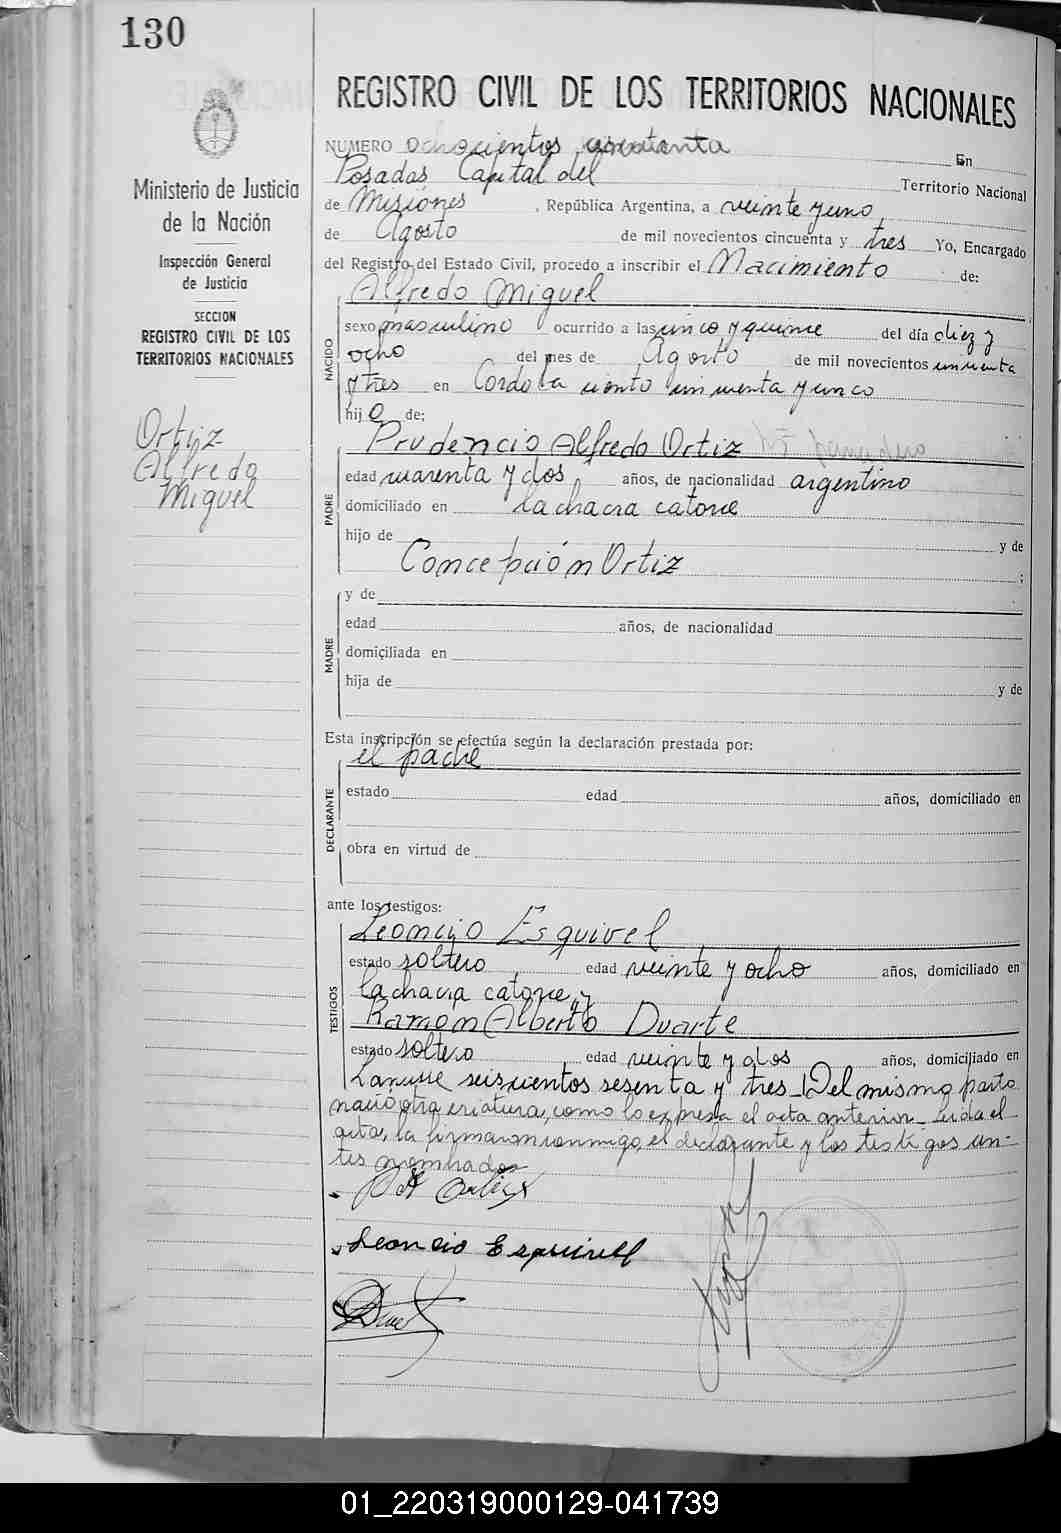 130
REGISTRO CIVIL DE LOS TERRITORIOS NACIONALES
Ministerio de Justicia
de la Nación
Inspección General
de Justicia
SECCION
REGISTRO CIVIL DE LOS
TERRITORIOS NACIONALES
Ortiz
Alfredo
Miguel
NUMERO ochocientos En
Posadas Capital del Territorio Nacional
de Misiónes , República Argentina, a veinte y uno
de Agosto de mil novecientos cincuenta y tres Yo, Encargado
del Registro del Estado Civil, procedo a inscribir el Nacimiento de:
Alfredo Miguel
NACIDO
sexo masculino ocurrido a las cinco y quince del día diez y
ocho del mes de Agosto de mil novecientos cincuenta
y tres en Cordoba ciento cincuenta y cinco
hijo de:
Prudencio Alfredo Ortiz
PADRE
edad cuarenta y dos años, de nacionalidad argentino
domiciliado en la chacra catorce
hijo de y de
Concepción Ortiz ;
MADRE
y de
edad años, de nacionalidad
domiciliada en
hija de y de
Esta inscripción se efectúa según la declaración prestada por:
el padre
DECLARANTE
estado edad años, domiciliado en
obra en virtud de
ante los testigos:
Leoncio Esquivel
TESTIGOS
estado soltero edad veinte y ocho años, domiciliado en
la chacra catorce y
Ramón Alberto Duarte
estado soltero edad veinte y dos años, domiciliado en
Lanusse seiscientos sesenta y tres_Del mismo parto
nació otra criatura, como lo expresa el acta anterior_Leida el
acta, la firmaron conmigo, el declarante y los testigos an-
tes nombrados
P A Ortiz
Leoncio Esquivel
01_220319000129-041739